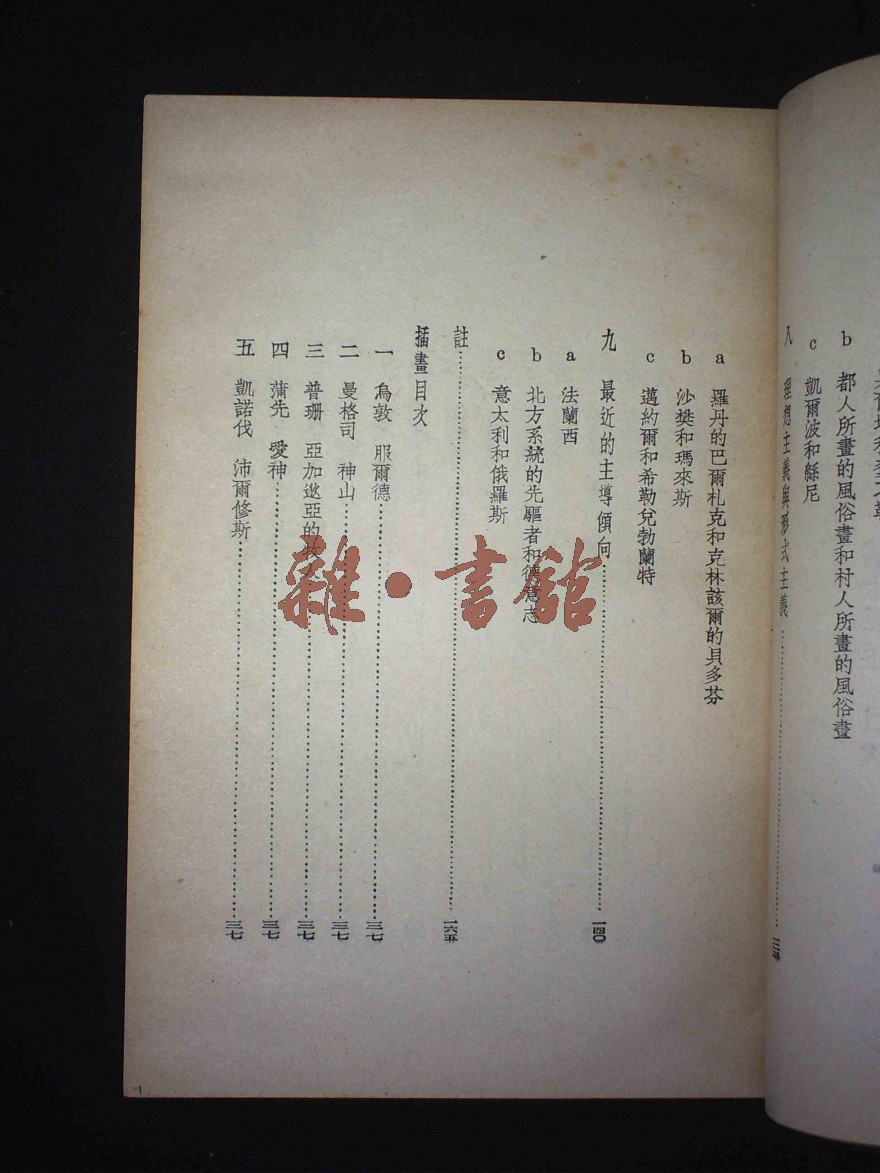 b 都人所畫的風俗畫和村人所畫的風俗畫
c 凱爾波和緜尼
八 理想主義與形式主義
a 羅丹的巴爾札克和克林該爾的貝多芬
b 沙樊和瑪來斯
c 邁約爾和希勒兌勃蘭特
九 最近的主導傾向……一四〇
a 法蘭西
b 北方系統的先驅者和德意志
c 意太利和俄羅斯
註……一六五
插畫目次
一 烏敦 服爾德……三七
二 曼格司 神山……三七
三 普珊 亞加逖亞的牧人……三七
四 蒲先 愛神……三七
五 凱諾伐 沛爾修斯……三七
雜·書館